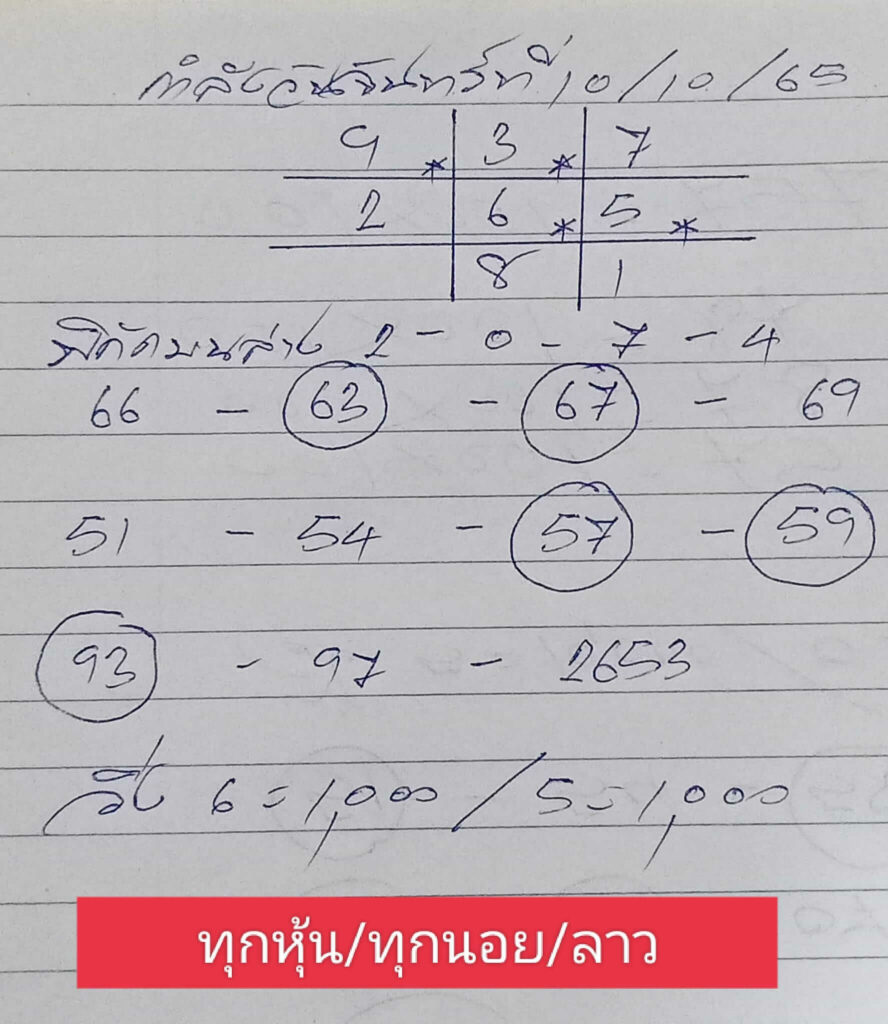 กำลังวันจันทร์ที่ 10/10/65
9 * 3 * 7
2 6 * 5 *
8 1
พิกัดบนล่าง 2 - 0 - 7 - 4
66 - 63 - 67 - 69
51 - 54 - 57 - 59
93 - 97 - 2653
วิ่ง 6 = 1,000 / 5 = 1,000
ทุกหุ้น/ทุกนอย/ลาว